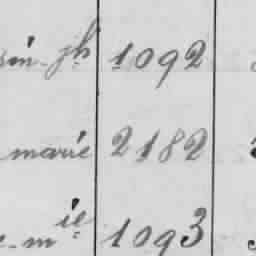 jh 1092
marie 2182
mie 1093